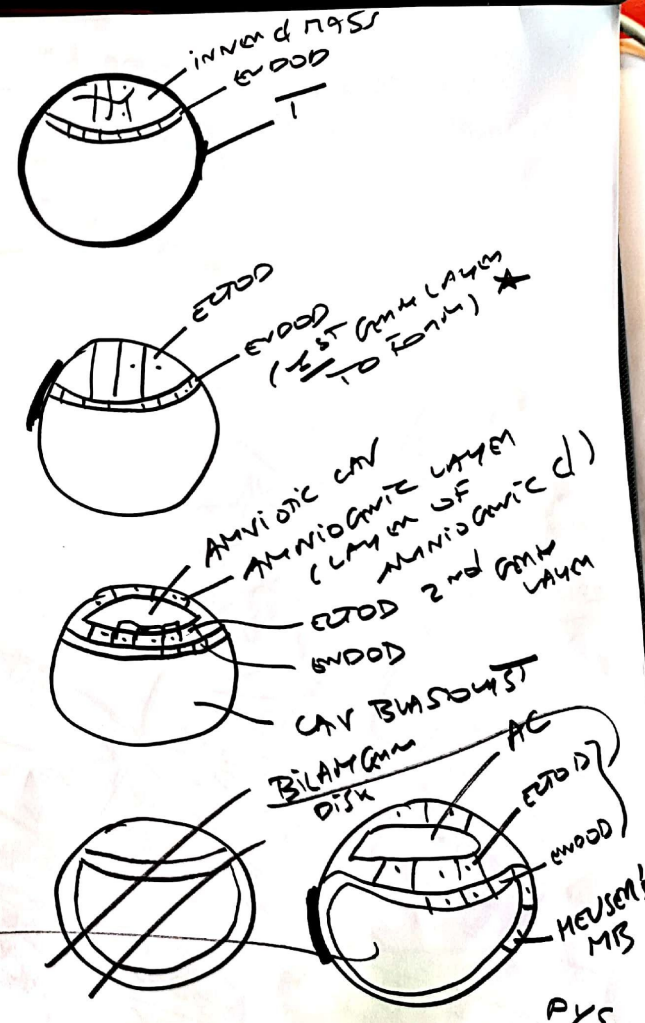 INNER d MASS
ENDOD
T
ECTOD
ENDOD
(1ST GERM LAYER
TO FORM) ★
AMNIOTIC CAV
AMNIOGENIC LAYER
(LAYER OF
AMNIOGENIC d)
ECTOD 2nd GERM
LAYER
ENDOD
CAV BLASTOCYST
BILAM GERM
DISK
AC
ECTOD
ENDOD
HEUSER'S
MB
PYS